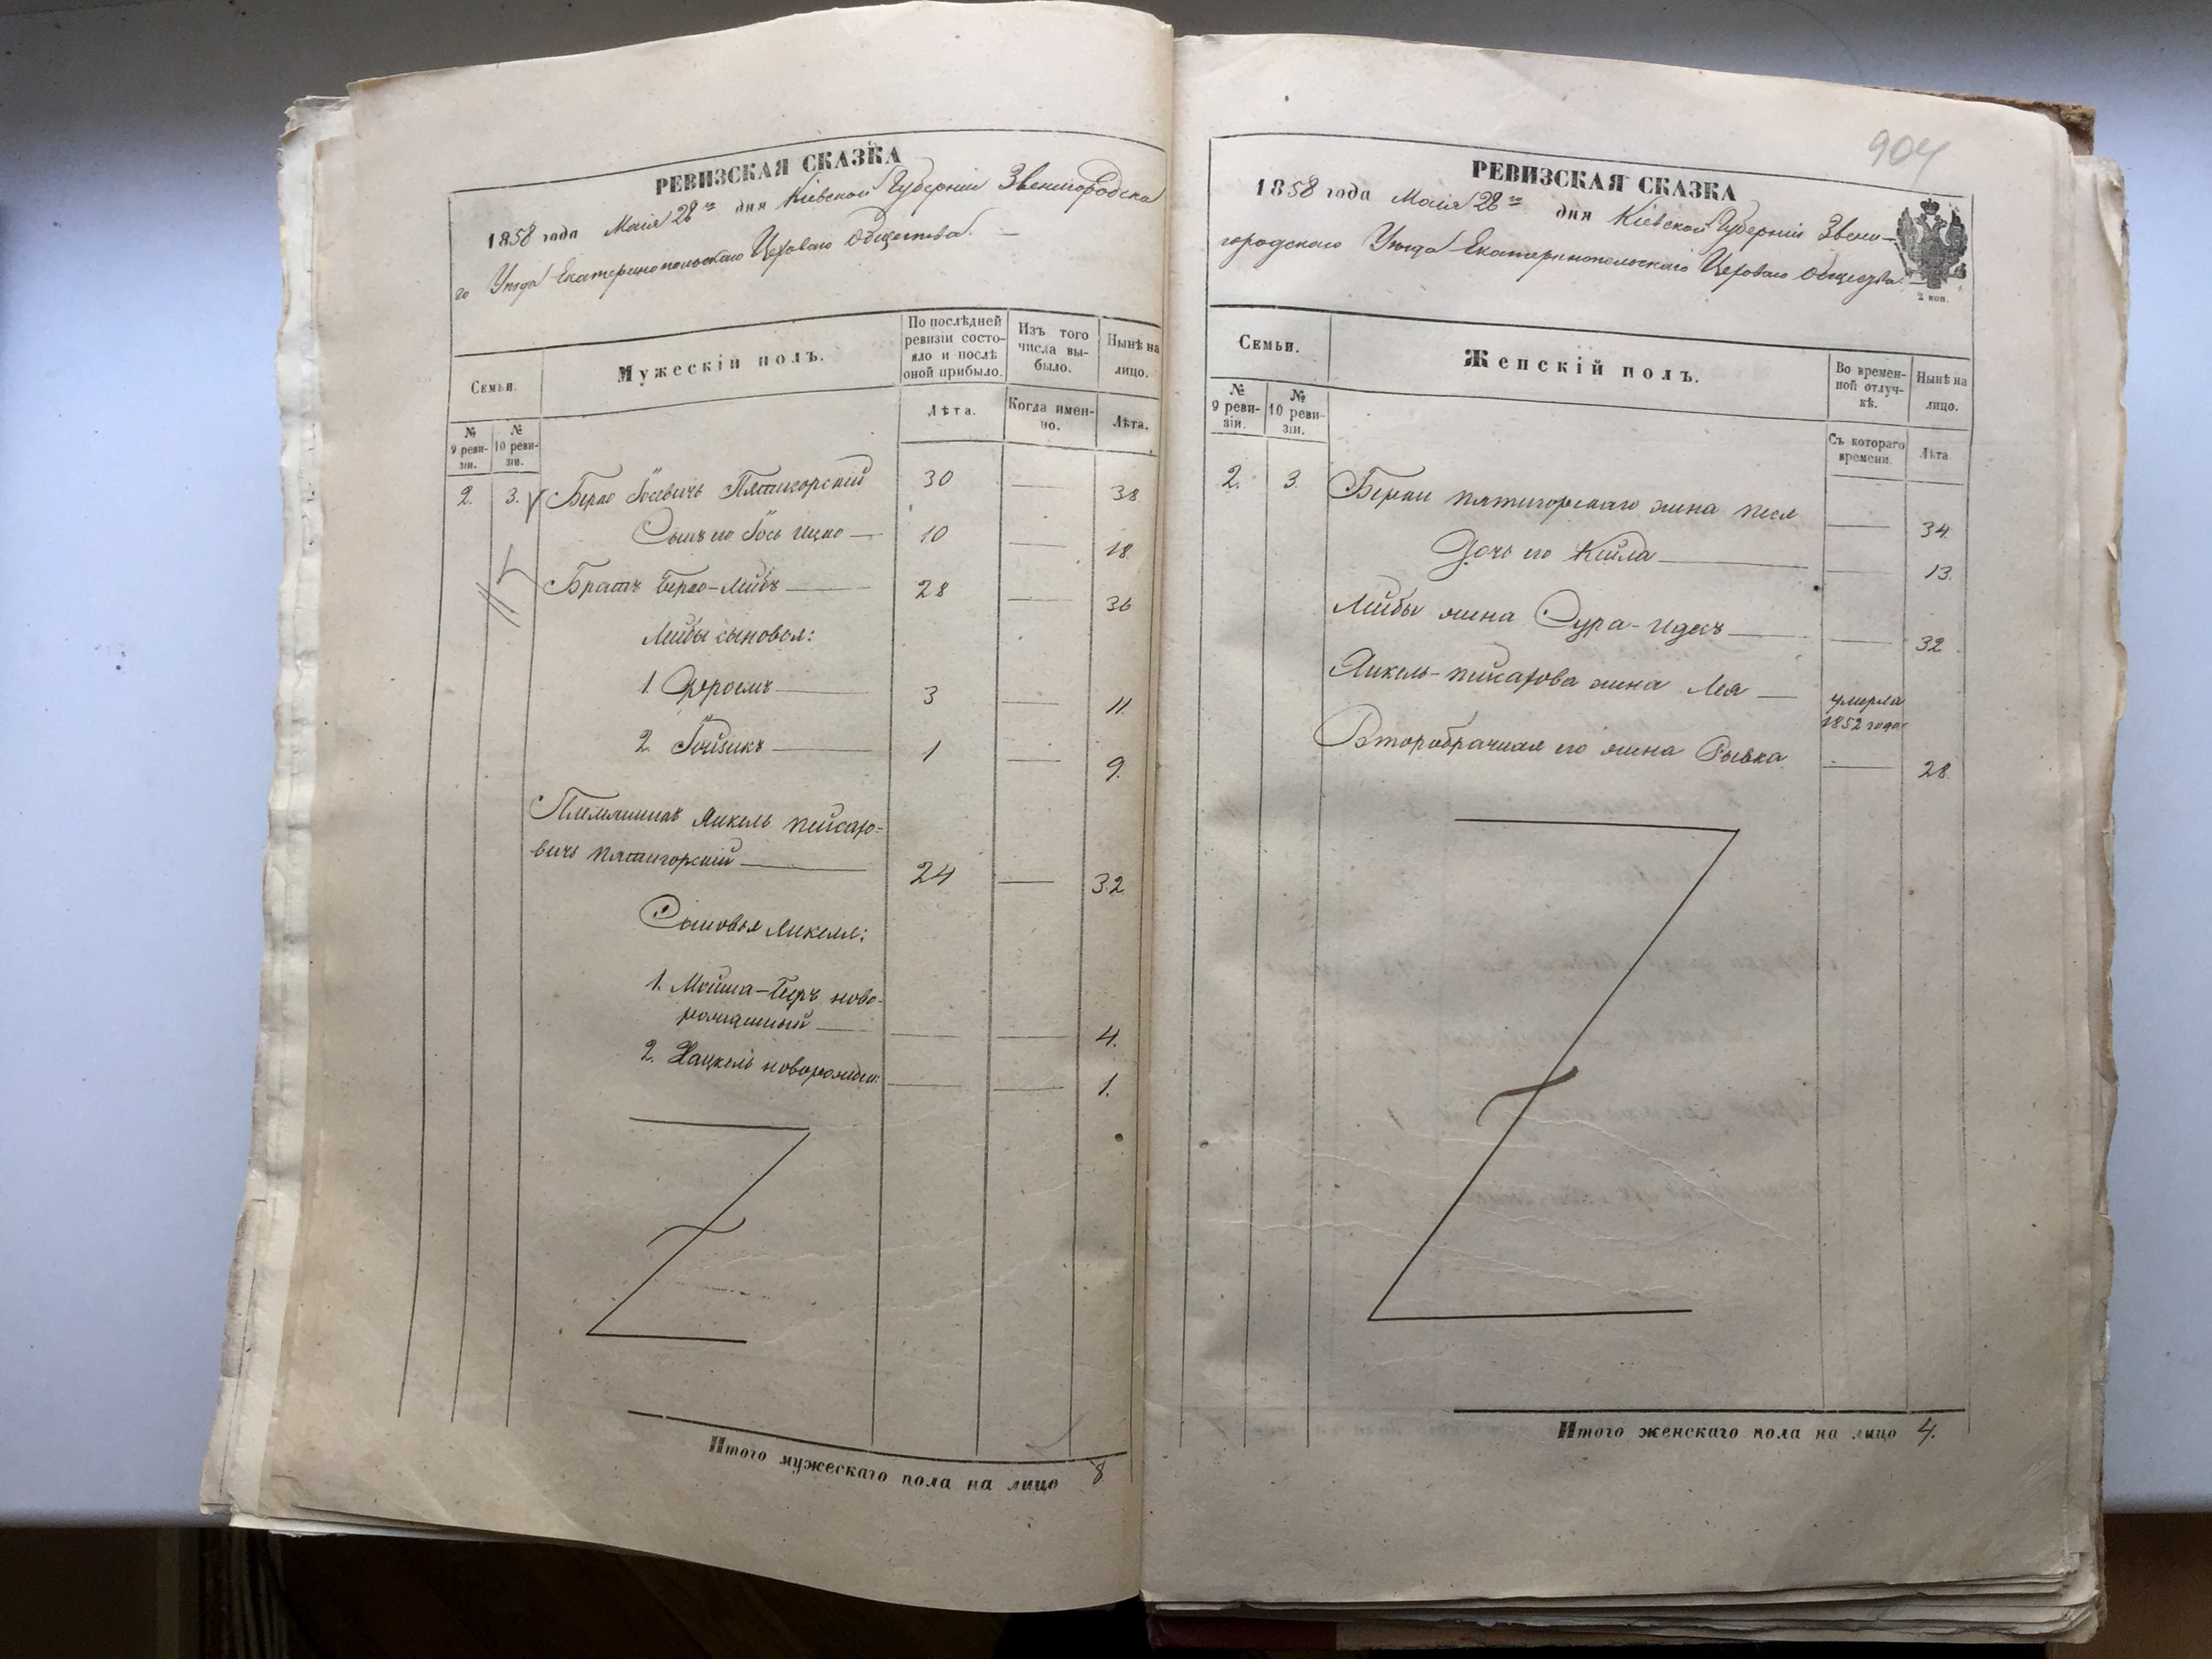 РЕВИЗСКАЯ СКАЗКА
1858 года Маія 28го дня Кіевской Губерніи Звенигородска
го Уѣзда Екатеринопольскаго Цеховаго Общества.
Семьи.
Мужескій полъ.
По послѣдней ревизіи состояло и послѣ оной прибыло.
Изъ того числа выбыло.
Нынѣ на лицо.
№ 9 ревизіи.
№ 10 ревизіи.
Лѣта.
Когда именно.
Лѣта.
2. 3. Берко Іосевичъ Пятигорскій 30 — 38
Сынъ его Іось Ицко — 10 — 18
Братъ Берко-Лейбъ — 28 — 36
Лейбы сыновья:
1. Фроимъ — 3 — 11.
2. Іойзикъ — 1 — 9.
Племянникъ Янкель пейсахо=
вичъ пятигорскій — 24 — 32
Сыновья Янкеля:
1. Мойша-Беръ ново-
рожденный — — — 4.
2. Хацкель новорожден: — — 1.
Итого мужескаго пола на лицо 8
904
РЕВИЗСКАЯ СКАЗКА
1858 года Маія 28го дня Кіевской Губерніи Звени-
городскаго Уѣзда Екатеринопольскаго Цеховаго Общества.
2 коп.
Семьи.
Женскій полъ.
Во временной отлучкѣ.
Нынѣ на лицо.
№ 9 ревизіи.
№ 10 ревизіи.
Съ котораго времени.
Лѣта
2. 3. Берки пятигорскаго жена песя — 34.
Дочь его Кейла — — 13.
Лейбы жена Сура-Идесъ — — 32
Янкель-пейсахова жена Лея — умерла
1852 года
Второбрачная его жена Рывка — 28.
Итого женскаго пола на лицо 4.